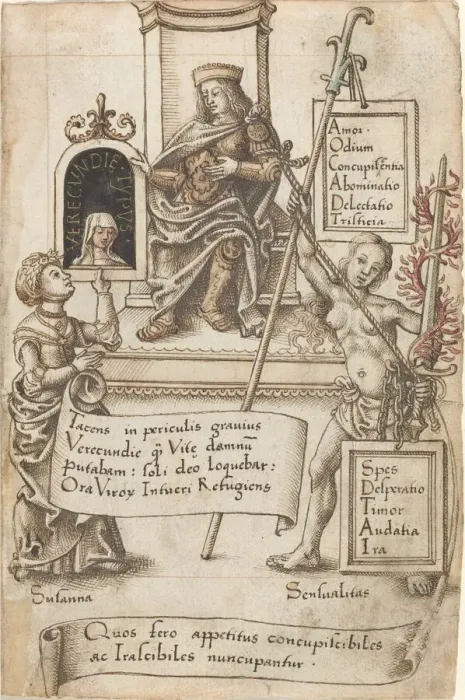 VERECUNDIE · TYPVS ·
Amor ·
Odium
Concupiscẽtia
Abominatio
Delectatio
Tristicia
Tacens in periculis gravius
Verecundie q̃ Vitę damnũ
Putabam: soli deo loquebar:
Ora Viroꝝ Intueri Refugiens
Spes
Desperatio
Timor
Audatia
Ira
Susanna
Sensualitas
Quos fero appetitus concupiscibiles
ac Irascibiles nuncupantur ·